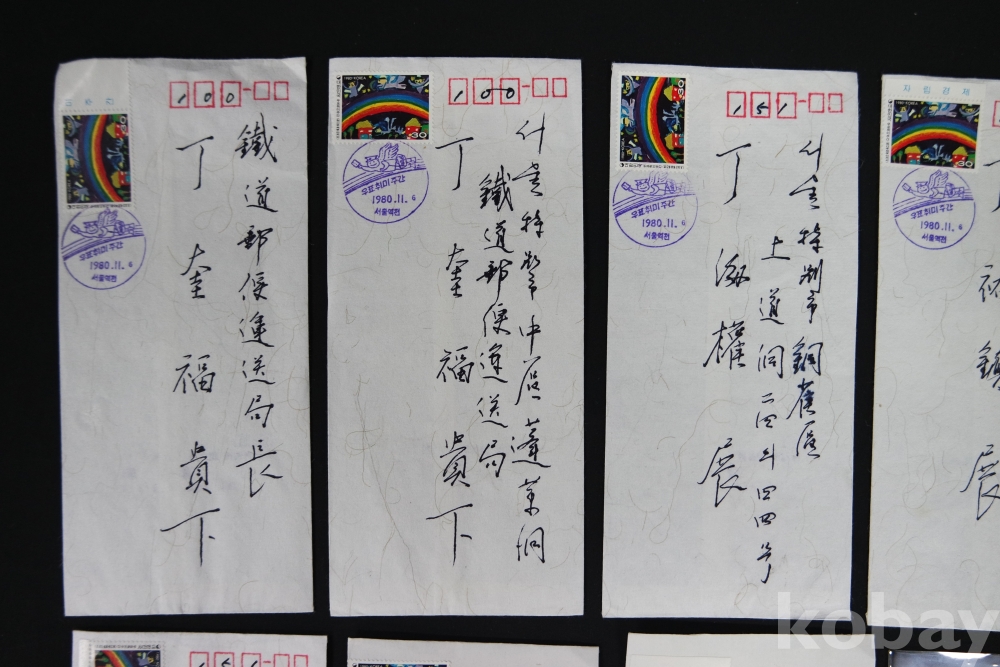 100
鐵道郵便運送局長
丁奎福貴下
우표취미주간
1980.11.6
서울역전
1980 KOREA
30
100
서울特別市中區蓬萊洞
鐵道郵便運送局
丁奎福貴下
우표취미주간
1980.11.6
서울역전
30
151
서울特別市銅雀區
上道洞二四의四四号
丁海權展
우표취미주간
1980.11.6
서울역전
자립경제
30
우표취미주간
1980.11.6
서울역전
151
kobay